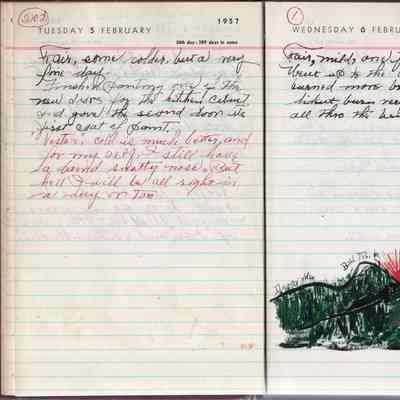 1957
TUESDAY 5 FEBRUARY
36th day - 329 days to come
Fair, some colder, but a very
fine day.
Finished painting one of the
new doors for the kitchen cabinet,
and gave the second door its
first coat of paint.
cold is much better, and
for my self, I still have
a damd snotty nose. But
hell I will be all right in
a day or too
1
WEDNESDAY 6 FEBRU
Fair, mild, and
up to the
burned more br
all thro the
Bald Mt.